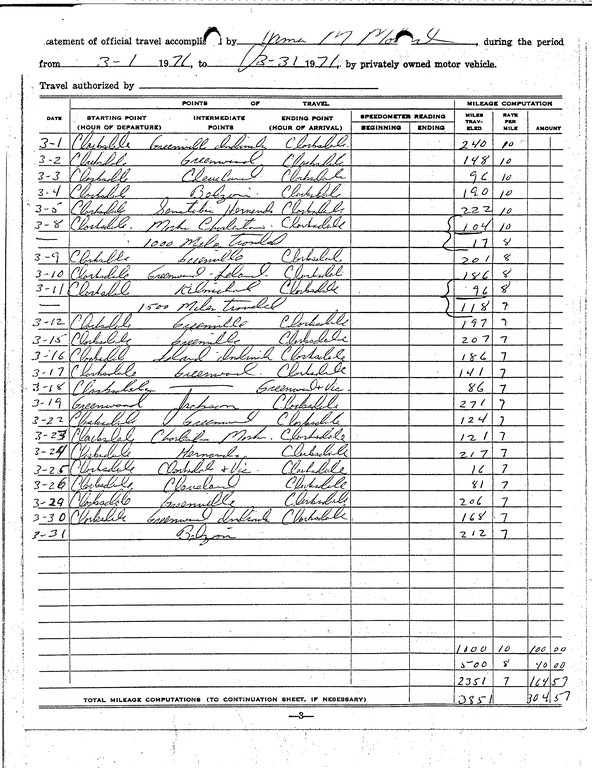 statement of official travel accomplished by , during the period
from 3-1 1971, to 3-31 1971, by privately owned motor vehicle.
Travel authorized by
POINTS OF TRAVEL MILEAGE COMPUTATION
DATE STARTING POINT (HOUR OF DEPARTURE) INTERMEDIATE POINTS ENDING POINT (HOUR OF ARRIVAL) SPEEDOMETER READING BEGINNING ENDING MILES TRAV-ELED RATE PER MILE AMOUNT
3-1 Clarksdale Greenville Indianola Clarksdale 240 10
3-2 Clarksdale Greenwood Clarksdale 148 10
3-3 Clarksdale Cleveland Clarksdale 96 10
3-4 Clarksdale Belzoni Clarksdale 190 10
3-5 Clarksdale Senatobia Hernando Clarksdale 222 10
3-8 Clarksdale Charleston Clarksdale 104 10
— 1000 Miles Traveled 17 8
3-9 Clarksdale Greenville Clarksdale 201 8
3-10 Clarksdale Greenwood - Leland Clarksdale 186 8
3-11 Clarksdale Kilmichael Clarksdale 96 8
— 1500 Miles traveled 118 7
3-12 Clarksdale Greenville Clarksdale 197 7
3-15 Clarksdale Greenville Clarksdale 207 7
3-16 Clarksdale Leland Indianola Clarksdale 186 7
3-17 Clarksdale Greenwood Clarksdale 141 7
3-18 Clarksdale — Greenwood + Vic. 86 7
3-19 Greenwood Jackson Clarksdale 271 7
3-22 Clarksdale Greenwood Clarksdale 124 7
3-23 Clarksdale Charleston Clarksdale 121 7
3-24 Clarksdale Hernando Clarksdale 217 7
3-25 Clarksdale Clarksdale + Vic. Clarksdale 16 7
3-26 Clarksdale Cleveland Clarksdale 81 7
3-29 Clarksdale Greenville Clarksdale 206 7
3-30 Clarksdale Greenwood Indianola Clarksdale 168 7
3-31 Belzoni 212 7
1000 10 100 00
500 8 40 00
2351 7 164 57
TOTAL MILEAGE COMPUTATIONS (TO CONTINUATION SHEET, IF NECESSARY) 3851 304 57
—3—